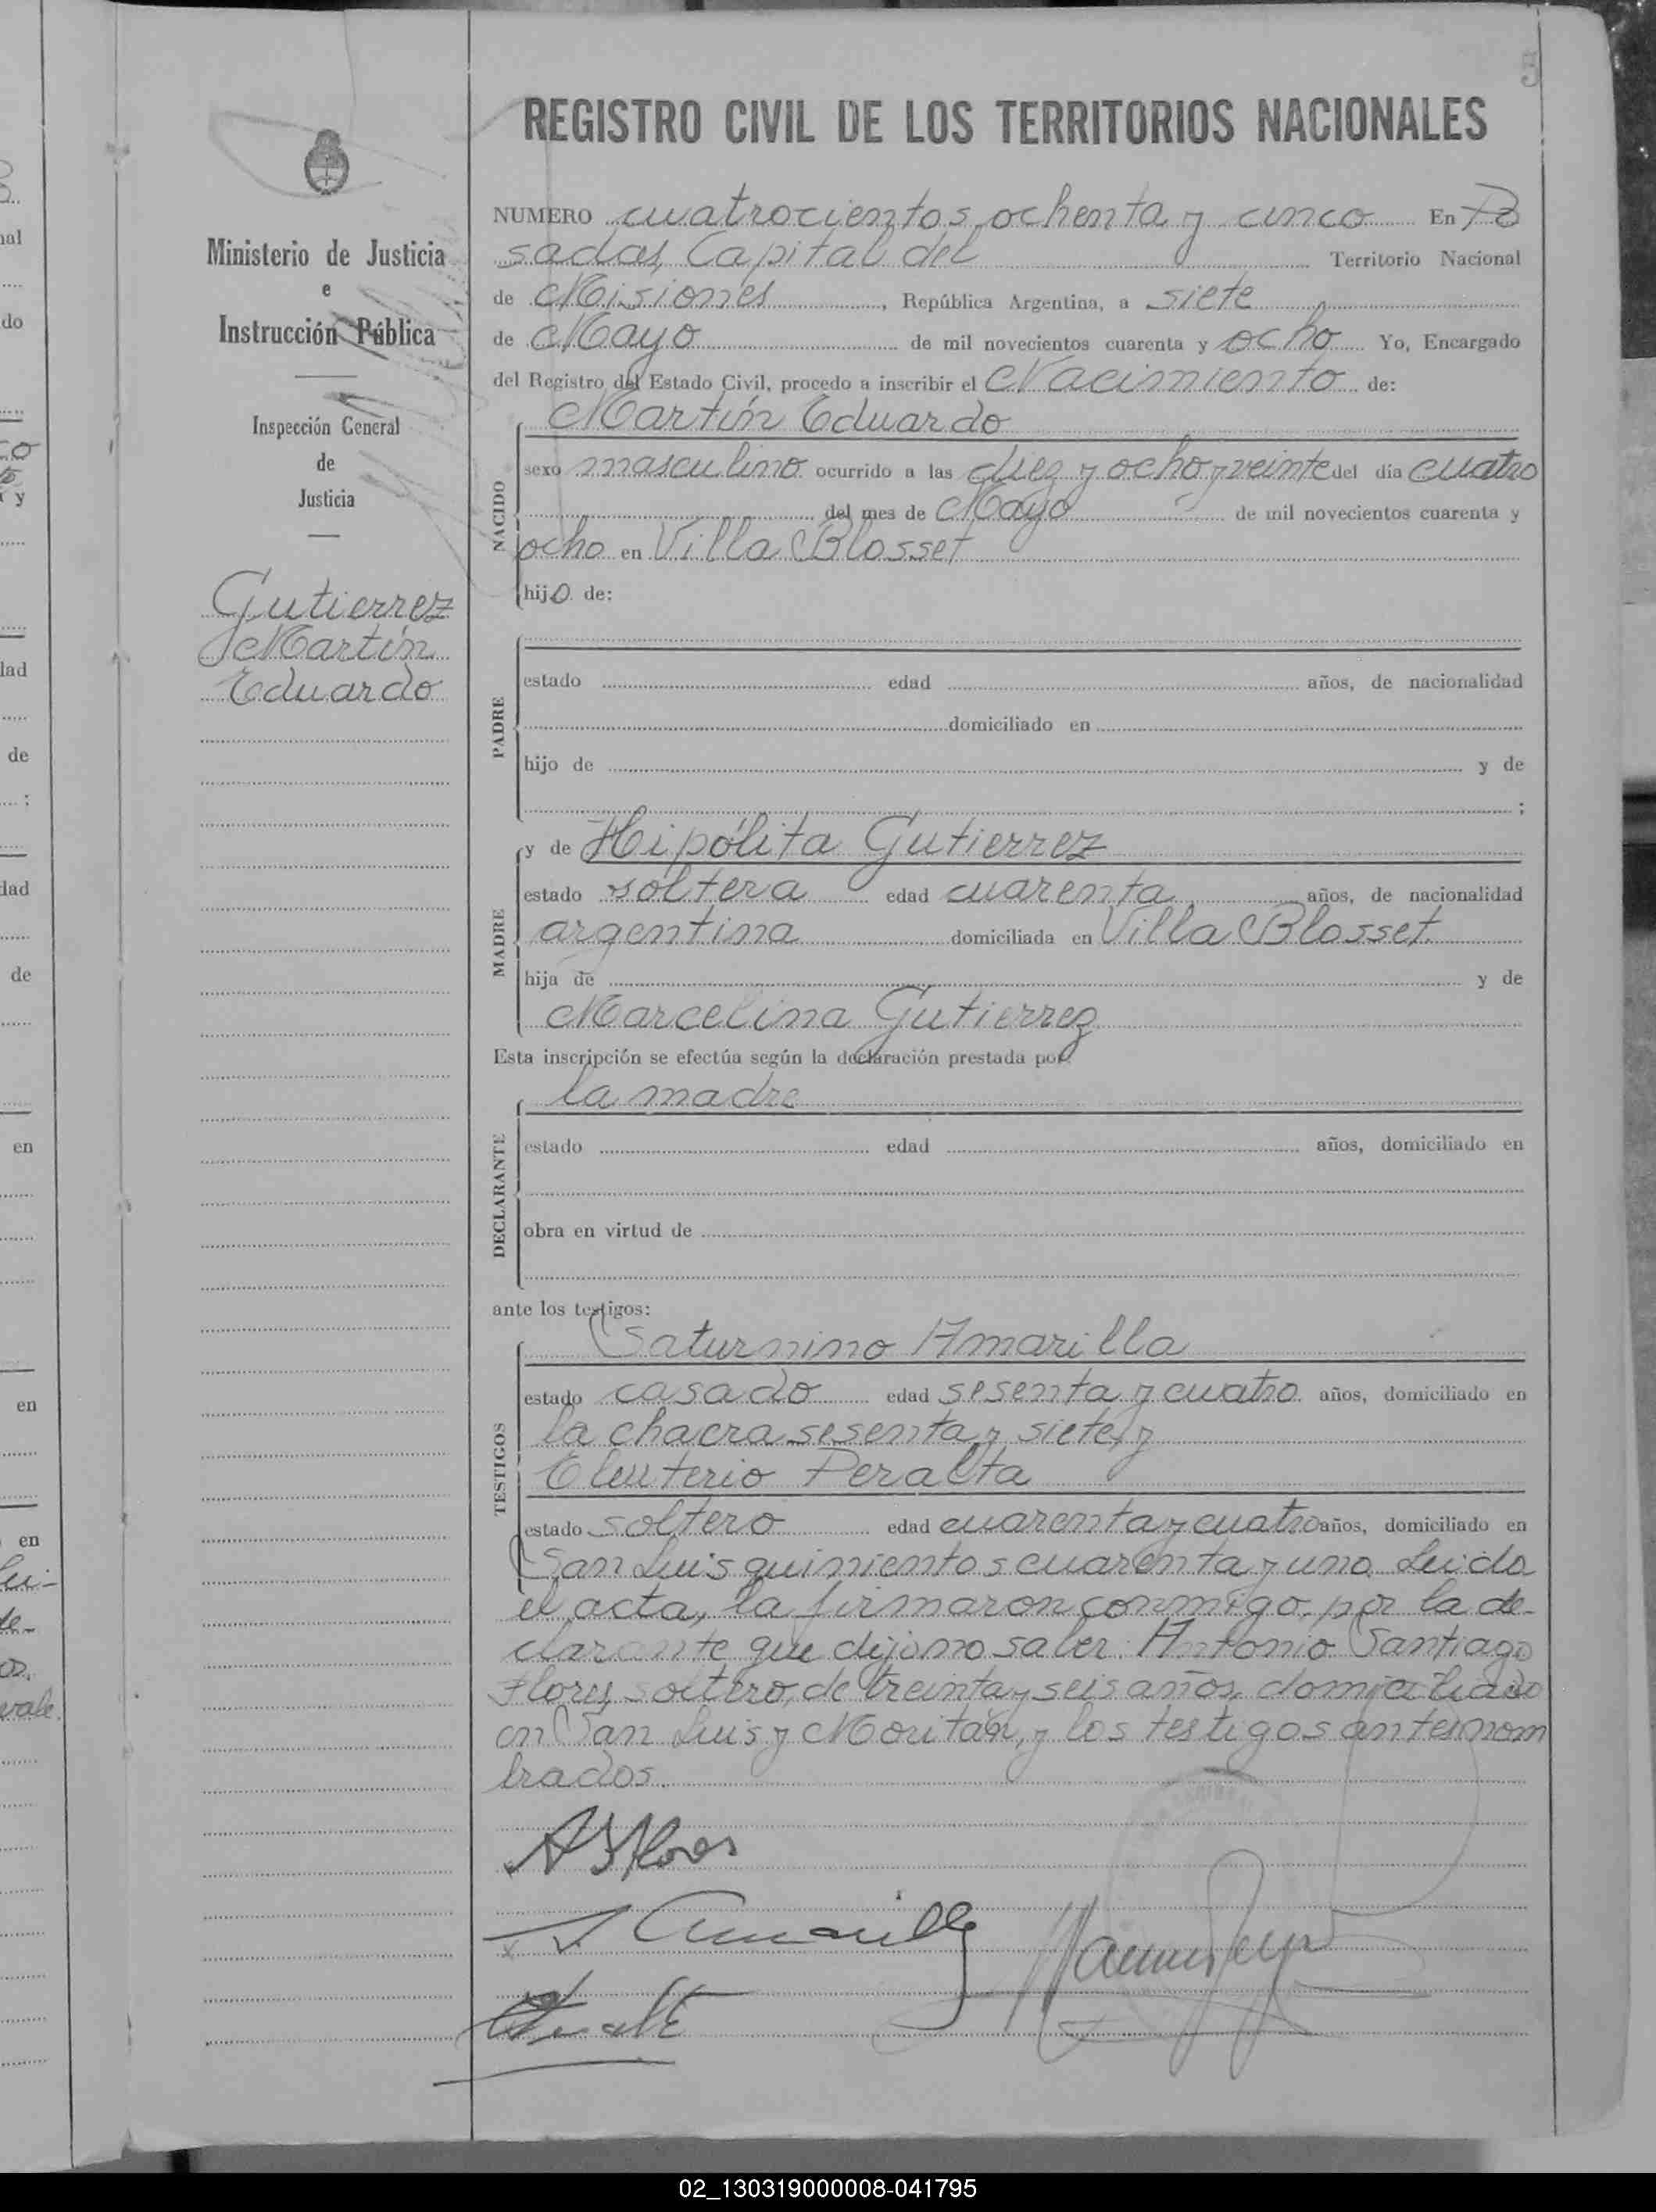 REGISTRO CIVIL DE LOS TERRITORIOS NACIONALES
Ministerio de Justicia
e
Instrucción Pública
Inspección General
de
Justicia
Gutierrez
Martín
Eduardo
NUMERO cuatrocientos ochenta y cinco En Po
sadas, Capital del Territorio Nacional
de Misiones, República Argentina, a siete
de Mayo de mil novecientos cuarenta y ocho Yo, Encargado
del Registro del Estado Civil, procedo a inscribir el Nacimiento de:
Martín Eduardo
NACIDO
sexo masculino ocurrido a las diez y ocho y veinte del día cuatro
del mes de Mayo de mil novecientos cuarenta y
ocho en Villa Blosset
hijo de:
PADRE
estado edad años, de nacionalidad
domiciliado en
hijo de y de
;
MADRE
y de Hipólita Gutierrez
estado soltera edad cuarenta años, de nacionalidad
argentina domiciliada en Villa Blosset
hija de y de
Marcelina Gutierrez
Esta inscripción se efectúa según la declaración prestada por
la madre
DECLARANTE
estado edad años, domiciliado en
obra en virtud de
ante los testigos:
TESTIGOS
Saturnino Amarilla
estado casado edad sesenta y cuatro años, domiciliado en
la chacra sesenta y siete, y
Eleuterio Peralta
estado soltero edad cuarenta y cuatro años, domiciliado en
San Luis quinientos cuarenta y uno. Leida
el acta, la firmaron conmigo, por la de-
clarante que dijo no saber: Antonio Santiago
Flores, soltero, de treinta y seis años, domiciliado
en San Luis y Moritán, y los testigos antesnom
brados.
A S Flores
S Amarilla
02_130319000008-041795